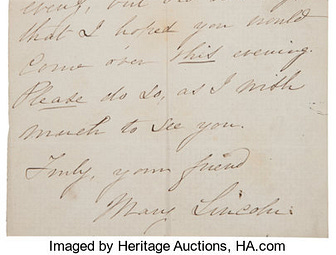 that I hoped you would
Come over this evening.
Please do so, as I wish
much to see you.
Truly, your friend
Mary Lincoln.
Imaged by Heritage Auctions, HA.com